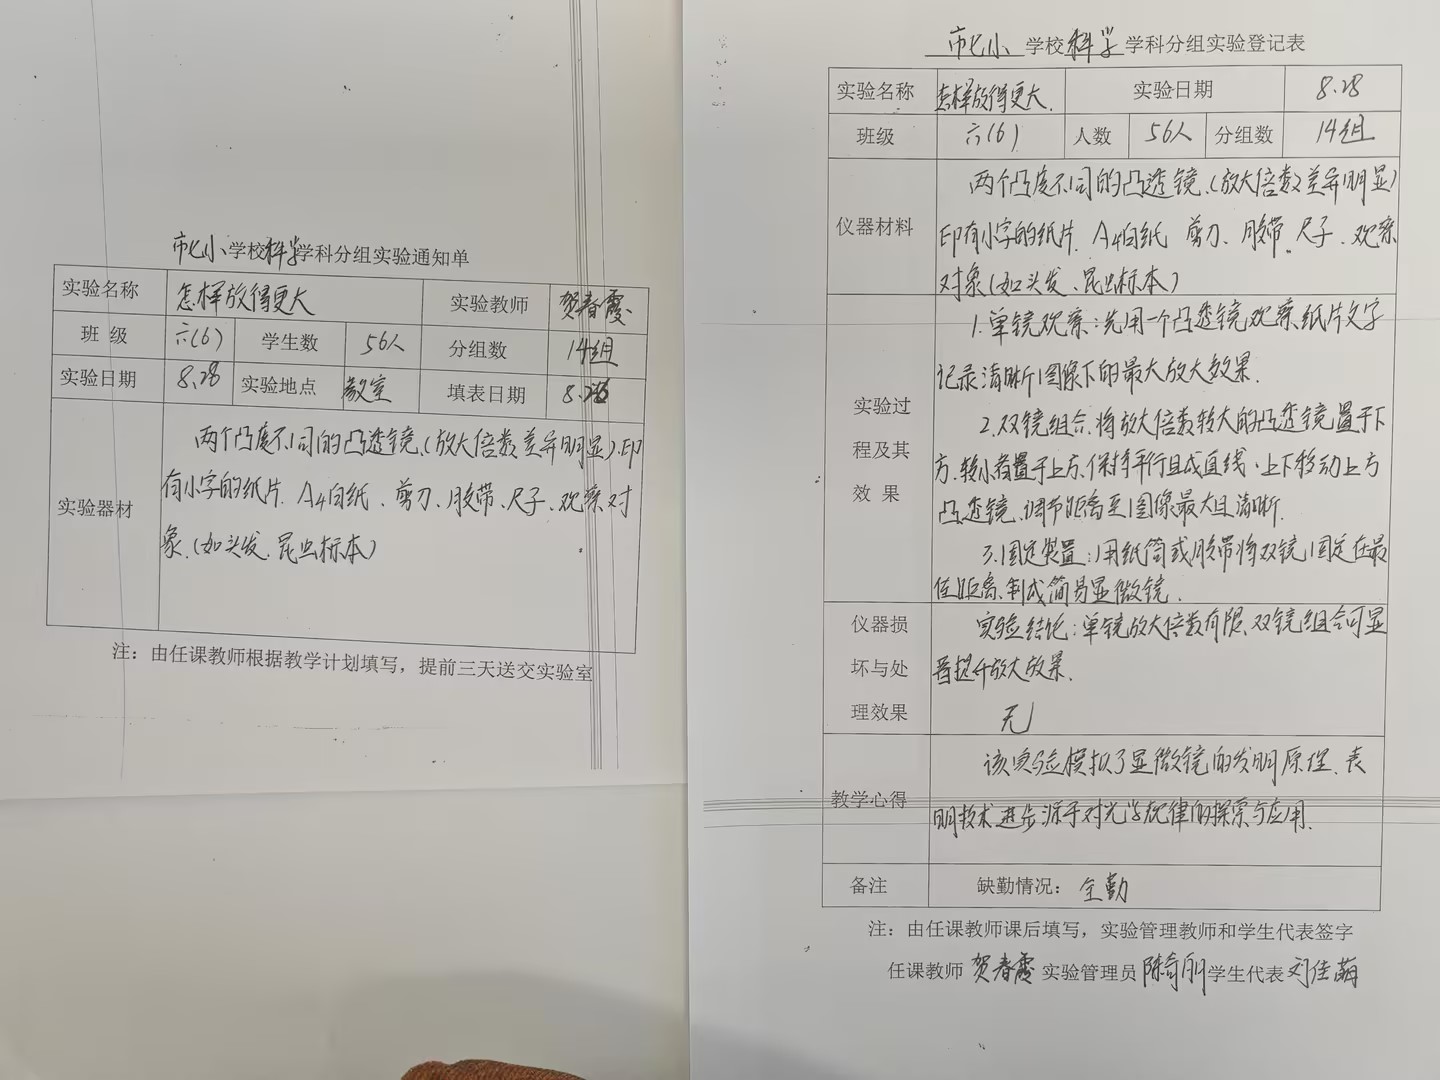 市七小学校科学学科分组实验通知单
实验名称 怎样放得更大 实验教师 贺春霞
班 级 六(6) 学生数 56人 分组数 14组
实验日期 8.28 实验地点 教室 填表日期 8.
实验器材
两个凸度不同的凸透镜.(放大倍数差异明显).印
有小字的纸片. A4白纸、剪刀、胶带、尺子、观察对
象.(如头发.昆虫标本)
注：由任课教师根据教学计划填写，提前三天送交实验室
市七小 学校 科学 学科分组实验登记表
实验名称 怎样放得更大. 实验日期 8.28
班级 六(6) 人数 56人 分组数 14组
仪器材料
两个凸度不同的凸透镜.(放大倍数差异明显)
印有小字的纸片. A4白纸 剪刀、胶带、尺子、观察
对象(如头发、昆虫标本)
实验过
程及其
效 果
1.单镜观察:先用一个凸透镜观察纸片文字
记录清晰图像下的最大放大效果.
2.双镜组合.将放大倍数较大的凸透镜置于下
方.较小者置于上方.保持平行且成直线.上下移动上方
凸透镜.调节距离至图像最大且清晰.
3.固定装置:用纸筒或胶带将双镜固定在最
佳距离.制成简易显微镜.
仪器损
坏与处
理效果
实验结论:单镜放大倍数有限、双镜组合可显
著提升放大效果.
无
教学心得
该实验模拟了显微镜的发明原理、表
明技术进步源于对光学规律的探索与应用.
备注 缺勤情况： 全勤
注：由任课教师课后填写，实验管理教师和学生代表签字
任课教师 贺春霞 实验管理员 陈 刚 学生代表 刘佳